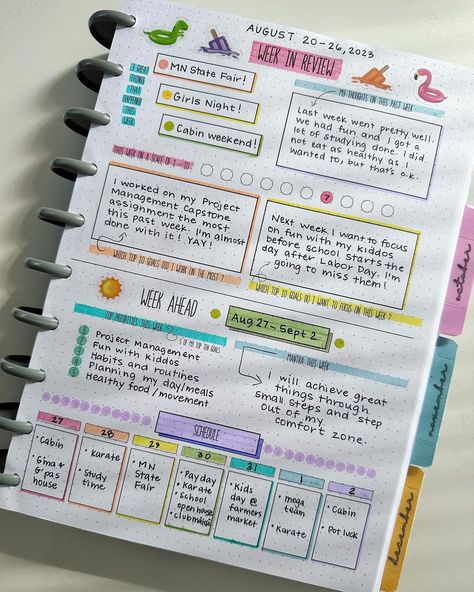 AUGUST 20-26, 2023
WEEK IN REVIEW
3 GREAT
THINGS
THAT
HAPPENED
THIS
WEEK
MN State Fair!
Girls Night!
Cabin weekend!
MY THOUGHTS ON THIS PAST WEEK
Last week went pretty well.
We had fun, and I got a
lot of studying done. I did
not eat as healthy as I
wanted to, but that's o.k.
THIS WEEK ON A SCALE OF 1 - 10
7
I worked on my Project
Management Capstone
assignment the most
this past week. I'm almost
done with it! YAY!
WHICH TOP 10 GOALS DID I WORK ON THE MOST?
Next week I want to focus
on fun with my kiddos
before school starts the
day after Labor Day. I'm
going to miss them!
WHICH TOP 10 GOALS DO I WANT TO FOCUS ON THIS WEEK?
WEEK AHEAD
Aug 27-Sept 2
TOP PRIORITIES THIS WEEK
5 OF MY TOP TEN GOALS
Project Management
Fun with kiddos
Habits and routines
Planning my day/meals
Healthy food/movement
MANTRA THIS WEEK
I will achieve great
things through
small steps and step
out of my
comfort zone.
SCHEDULE
27
• Cabin
• Gma &
G'pas
house
28
• Karate
• Study
time
29
• MN
State
Fair
30
• Payday
• Karate
• School
open house
31
• Kids
day @
farmers
market
1
• mega
team
• Karate
2
• Cabin
• Potluck
october
november
december